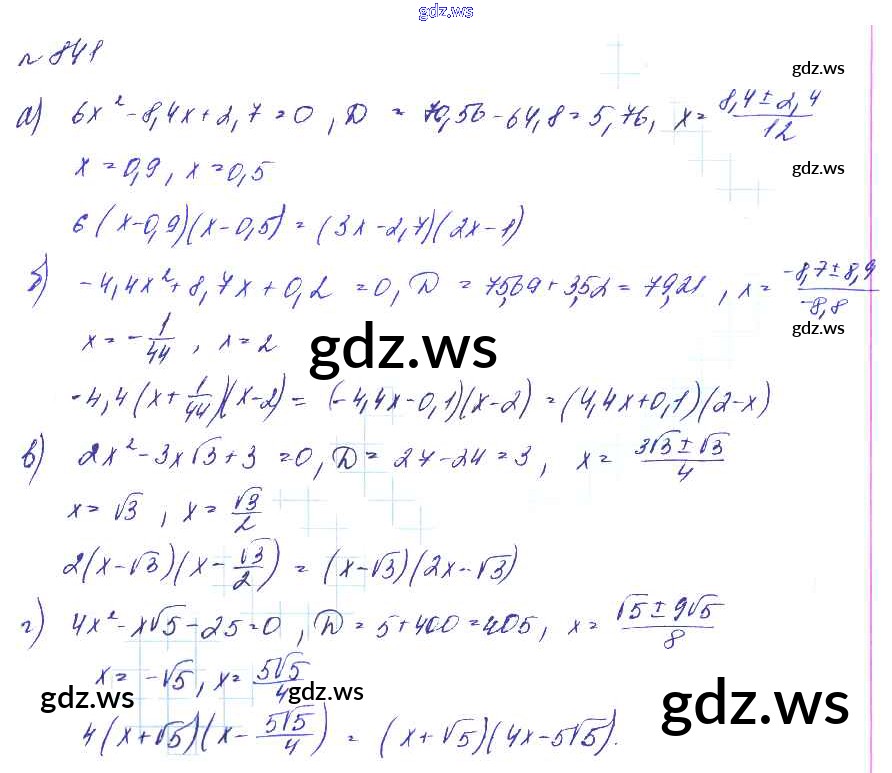 gdz.ws
№ 841
gdz.ws
а) 6x² - 8,4x + 2,7 = 0, D = 70,56 - 64,8 = 5,76, x = (8,4 ± 2,4)/12
x = 0,9, x = 0,5
gdz.ws
6(x - 0,9)(x - 0,5) = (3x - 2,7)(2x - 1)
б) -4,4x² + 8,7x + 0,2 = 0, D = 75,69 + 3,52 = 79,21, x = (-8,7 ± 8,9)/(-8,8)
gdz.ws
x = -1/44, x = 2
gdz.ws
-4,4(x + 1/44)(x - 2) = (-4,4x - 0,1)(x - 2) = (4,4x + 0,1)(2 - x)
в) 2x² - 3x√3 + 3 = 0, D = 27 - 24 = 3, x = (3√3 ± √3)/4
x = √3, x = √3/2
2(x - √3)(x - √3/2) = (x - √3)(2x - √3)
г) 4x² - x√5 - 25 = 0, D = 5 + 400 = 405, x = (√5 ± 9√5)/8
x = -√5, x = 5√5/4
gdz.ws gdz.ws gdz.ws
4(x + √5)(x - 5√5/4) = (x + √5)(4x - 5√5).